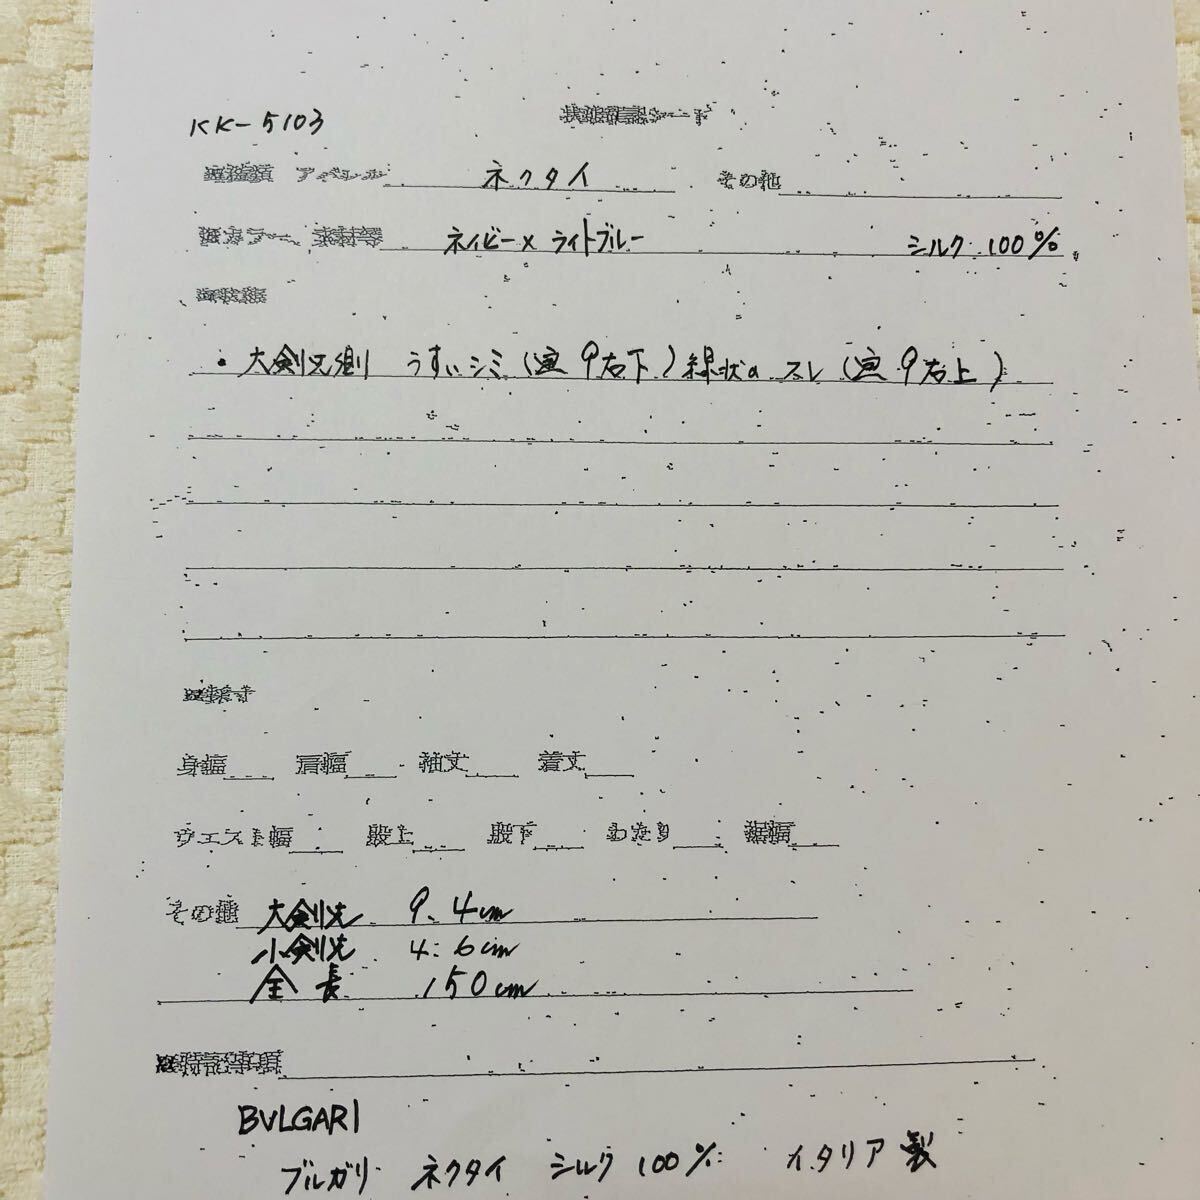 KK-5103
状態確認シート
アパレル ネクタイ その他
カラー、素材等 ネイビー×ライトブルー シルク 100%
・大剣先側 うすいシミ(画9右下)線状のスレ(画9右上)
身幅 肩幅 袖丈 着丈
ウエスト幅 股上 股下 わたり 裾幅
その他 大剣先 9.4cm
小剣先 4.6cm
全長 150cm
特記等項
BVLGARI
ブルガリ ネクタイ シルク 100% イタリア製